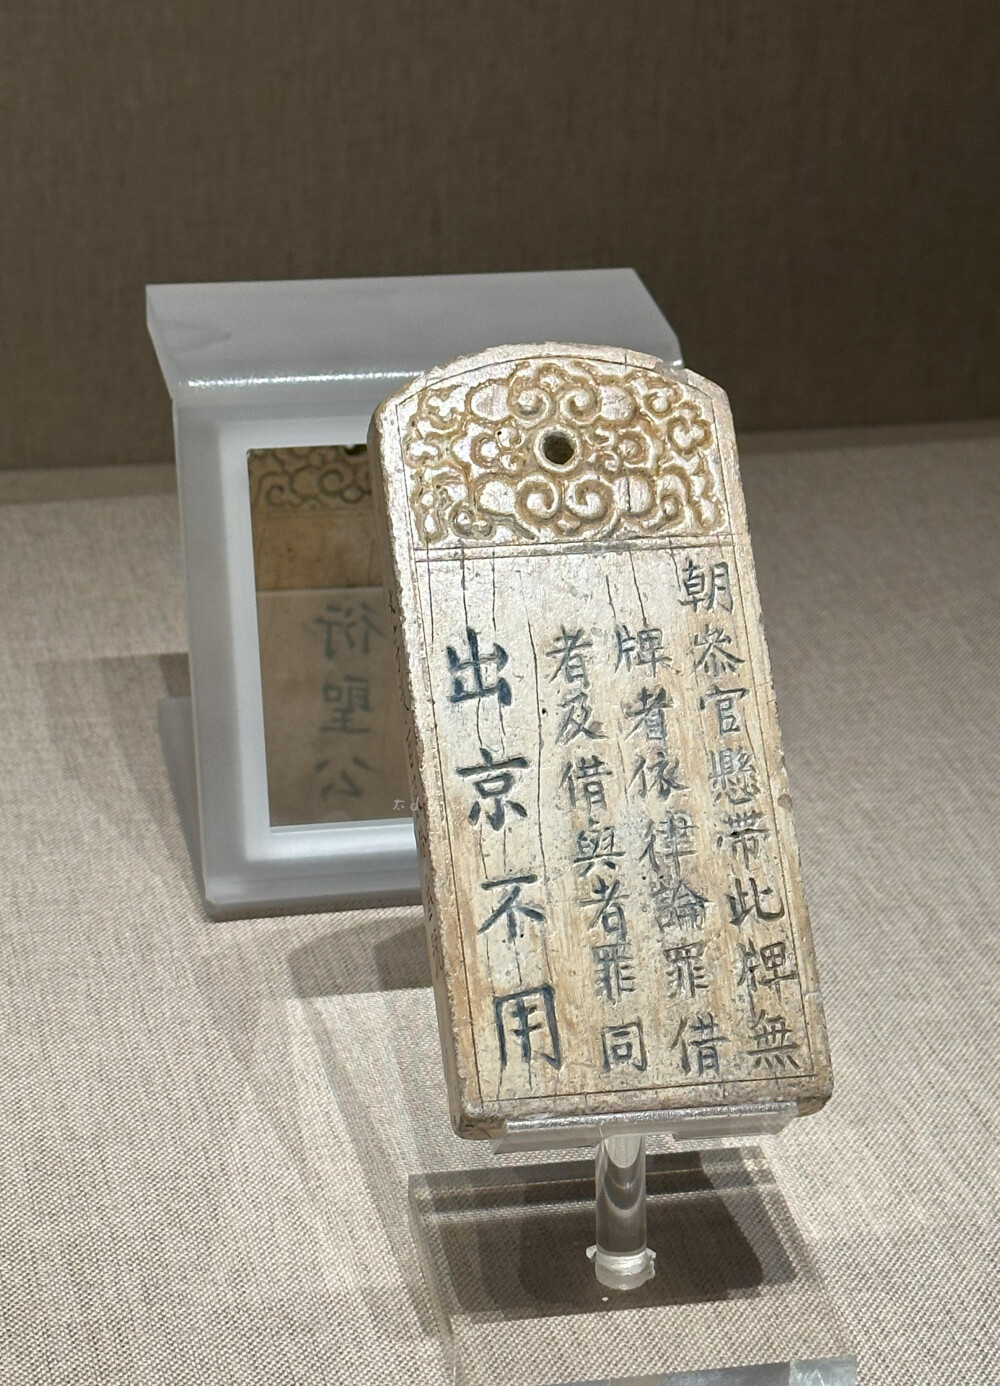 朝叅官懸帶此牌無
牌者依律論罪借
者及借與者罪同
出京不用
衍聖公